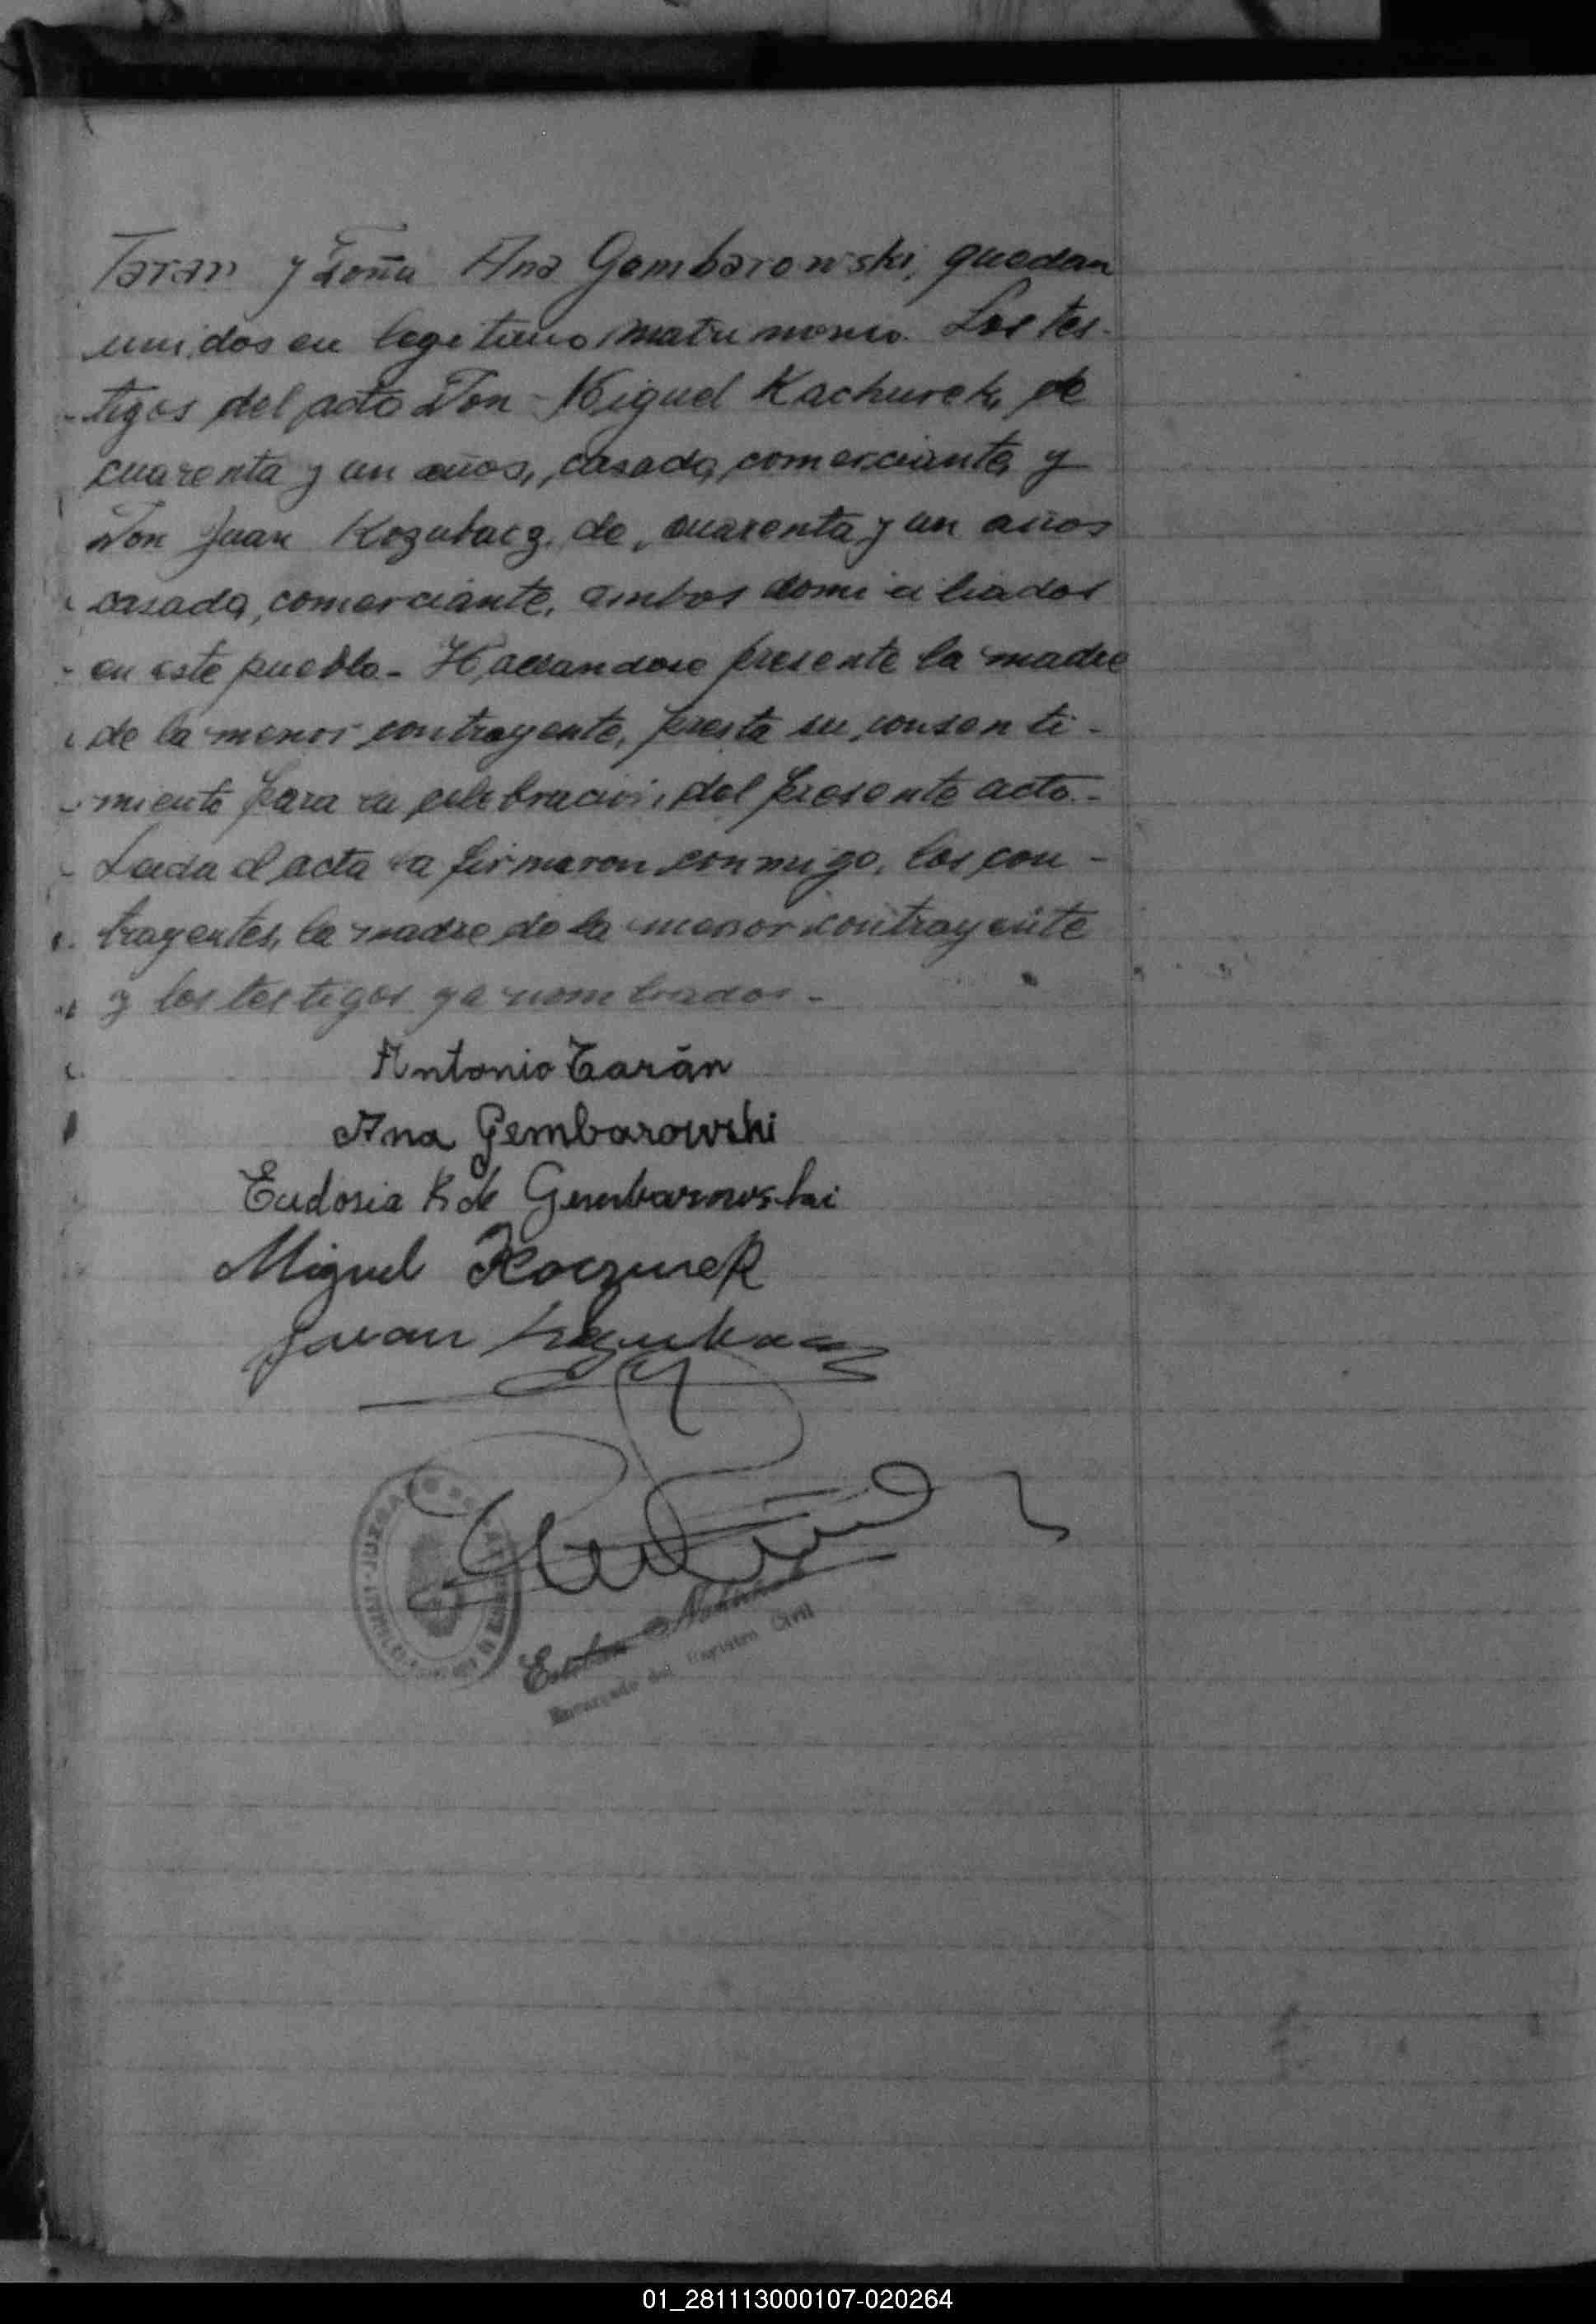 Taran y Doña Ana Gembarowski, quedan
unidos en legitimo matrimonio. Los tes-
tigos del acto Don Miguel Kachurek, de
cuarenta y un años, casado, comerciante, y
Don Juan Kozubacz, de cuarenta y un años
casado, comerciante, ambos domiciliados
en este pueblo - Hallandose presente la madre
de la menor contrayente, presta su consenti-
miento para la celebracion del presente acto -
Leida el acta la firmaron conmigo, los con-
trayentes, la madre de la menor contrayente
y los testigos ya nombrados -
Antonio Tarán
Ana Gembarowski
Eudosia K de Gembarowski
Miguel Koczurek
Juan Kozubacz
JUZGADO DE
Esteban
Encargado del Registro Civil
01_281113000107-020264